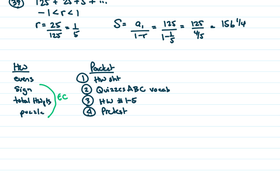 39) 125 + 25 + 5 + ...
-1 < r < 1
r = 25/125 = 1/5    S = a₁/(1-r) = 125/(1-1/5) = 125/(4/5) = 156 1/4
HW    Packet
evens    ① HW sht
Sign    ② Quizzes ABC vocab
total Heights    EC    ③ HW # 1-5
puzzle    ④ Pretest